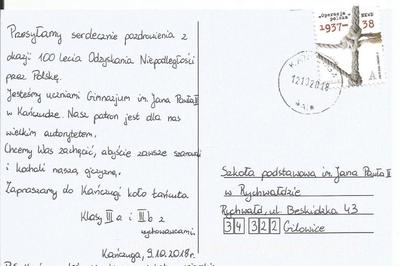 Przesyłamy serdecznie pozdrowienia z
okazji 100 lecia Odzyskania Niepodległości
przez Polskę.
Jesteśmy uczniami Gimnazjum im. Jana Pawła II
w Kańczudze. Nasz patron jest dla nas
wielkim autorytetem.
Chcemy Was zachęcić, abyście zawsze szanowali
i kochali naszą ojczyznę.
Zapraszamy do Kańczugi koło Łańcuta
Klasy III a i III b z
wychowawcami.
Kańczuga, 9.10.2018r.
„Operacja polska” NKWD
1937-38
A
12102018
Szkoła podstawowa im. Jana Pawła II
w Rychwałdzie
Rychwałd, ul. Beskidzka 43
34 322 Gilowice